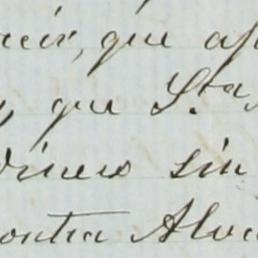 que
que Sta
dinero sin
contra Alva